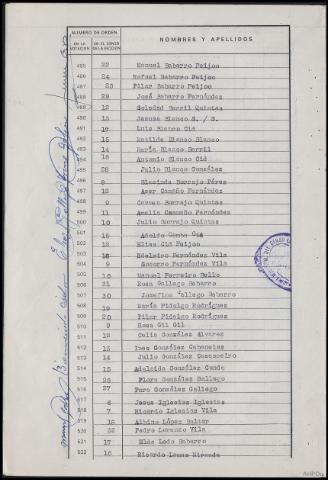 NUMERO DE ORDEN
EN LA VOTACION
EN EL CENSO DE LA SECCION
NOMBRES Y APELLIDOS
485 22 Manuel Babarro Feijoo
486 24 Rafael Babarro Feijoo
487 23 Pilar Babarro Feijoo
488 29 José Babarro Fernández
489 12 Soledad Borril Quintas
490 13 Jesusa Blanco S. / S.
491 17 Luis Blanco Cid
492 15 Matilde Blanco Blanco
493 14 María Blanco Borril
494 16 Antonio Blanco Cid
495 28 Julio Blanco González
496 8 Blasinda Borrajo Pérez
497 12 Azar Camaño Fernández
498 9 Carmen Borrajo Quintas
499 11 Amelia Camaaño Fernández
500 10 Julio Borrajo Quintas
501 16 Adolfo Camba Cid
502 12 Elisa Cid Feijoo
503 18 Edelmiro Fernández Vila
504 9 Socorro Fernández Vila
505 10 Manuel Ferreiro Bello
506 31 Rosa Gallego Babarro
507 30 Josefina Gallego Babarro
508 19 María Fidalgo Rodríguez
509 20 Pilar Fidalgo Rodríguez
510 9 Rosa Gil Gil
512 12 Celia González Álvarez
513 13 Ines González Cabaneles
514 14 Julio González Casasoeiro
515 15 Adelaida González Conde
516 26 Flora González Gallego
516 27 Pura González Gallego
517 6 Jesus Iglesias Iglesias
518 7 Ricardo Iglesias Vila
519 18 Albino López Balter
520 32 Pedro Lorenzo Vila
521 17 Elda Ledo Babarro
522 16 Ricardo Lamas Miranda
AHPOu